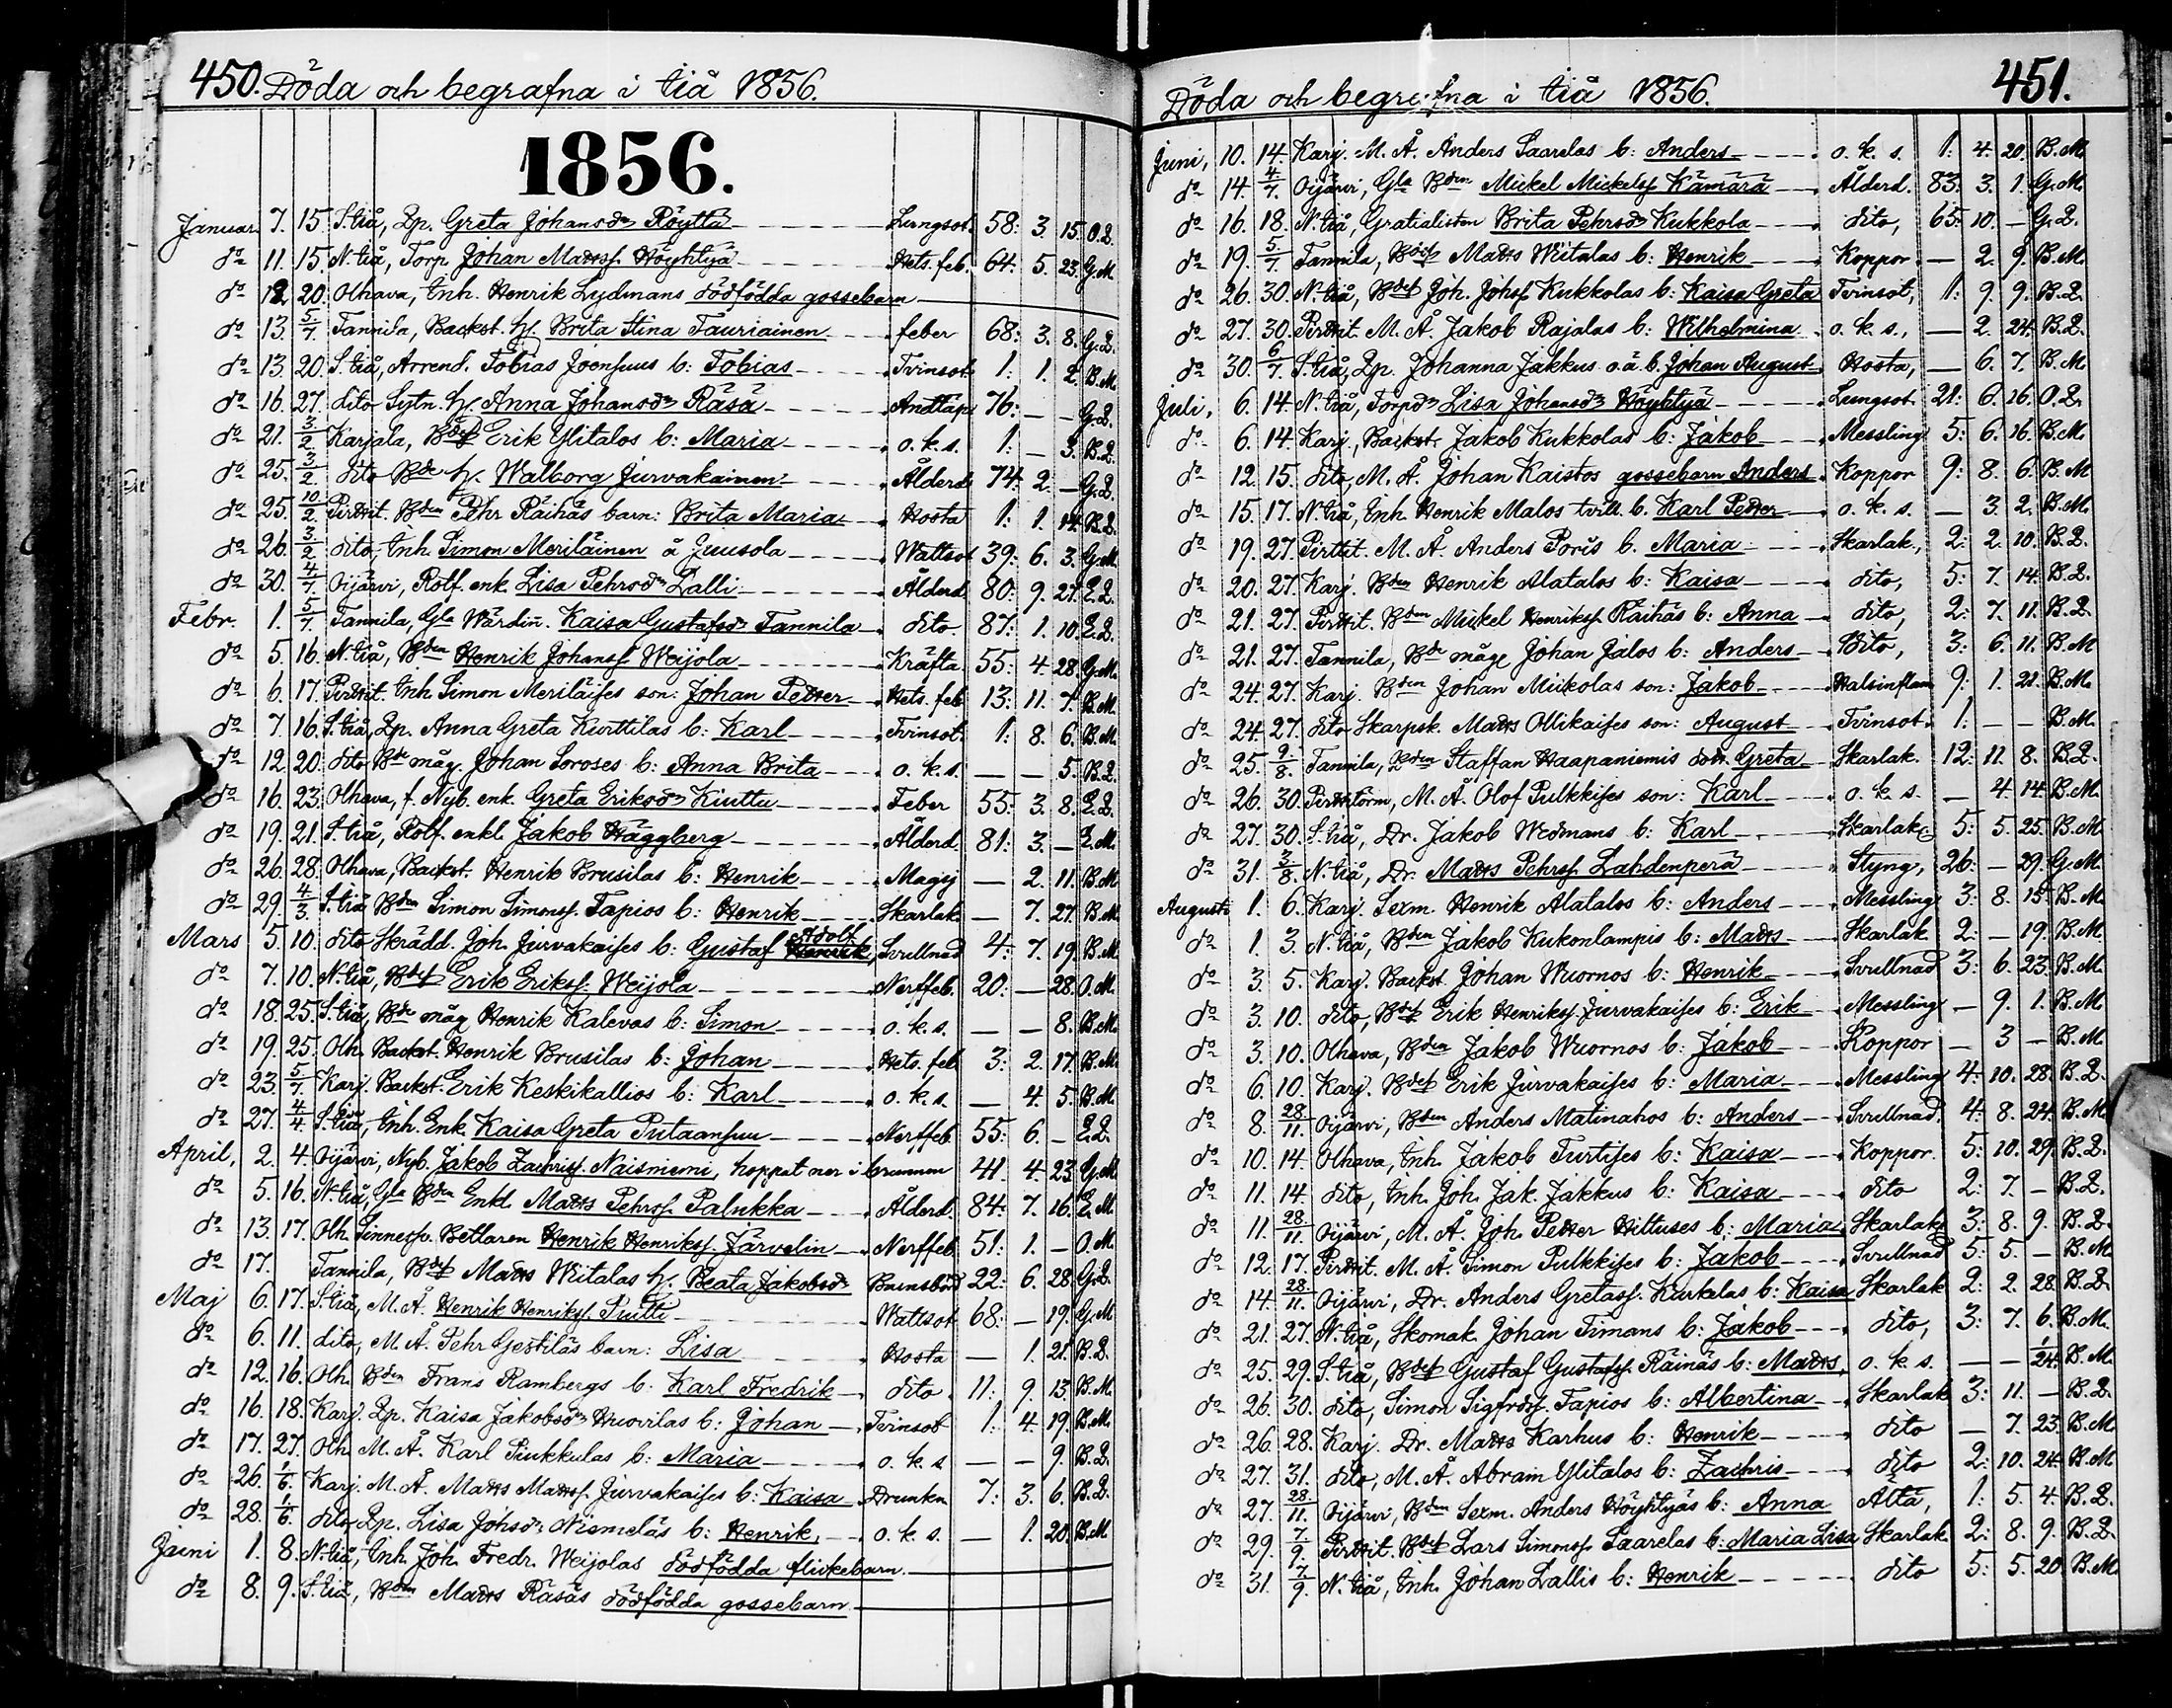 450. Döda och begrafna i Iiå 1856.
1856.
Januar. 7. 15. S. Iiå, Lp. Greta Johansdr Röyttä Lungsot. 58: 3. 15. O.Q.
do 11. 15. N. Iiå, Torp. Johan Mattss. Höyhtyä Hets. feb. 64: 5. 23. G.M.
do 12. 20. Olhava, Inh. Henrik Lydmans dödfödda gossebarn
do 13. 5/7. Tannila, Backst. H. Brita Stina Tauriainen feber 68: 3. 8. G.Q.
do 13. 20. S. Iiå, Arrend. Tobias Joensuus b: Tobias Tvinsot. 1: 1. 2. B.M.
do 16. 27. dito Sytn. H. Anna Johansdr Räsä Andtäp. 76: – – G.Q.
do 21. 3/2. Karjala, Bdes Erik Ylitalos b: Maria o.k.s. 1: – 3. B.Q.
do 25. 3/2. dito Bde H. Walborg Jurvakainen Ålderd. 74: 2. – G.Q.
do 25. 10/2. Pirttit. Bden Pehr Räihäs barn: Brita Maria Hosta 1: 1. 14. B.Q.
do 26. 3/2. dito, Inh. Simon Meriläinen å Juusola Wattsot 39: 6. 3. G.M.
do 30. 4/7. Oijärvi, Rotf. enk. Lisa Pehrsdr Lalli Ålderd. 80: 9. 27. E.Q.
Febr. 1. 5/7. Tannila, Gla Wärdin. Kaisa Gustafsdr Tannila dito. 87: 1. 10. E.Q.
do 5. 16. N. Iiå, Bden Henrik Johanss. Weijola Kräfta 55: 4. 28. G.M.
do 6. 17. Pirttit. Inh. Simon Meriläises son: Johan Petter Hets. feb. 13: 11. 7. B.M.
do 7. 16. S. Iiå, Lp. Anna Greta Kurttilas b: Karl Tvinsot. 1: 8. 6. B.M.
do 12. 20. dito Bde måg. Johan Soroses b: Anna Brita o.k.s. – – 5. B.Q.
do 16. 23. Olhava, f. Nyb. enk. Greta Eriksdr Kiuttu Feber 55: 3. 8. E.Q.
do 19. 21. S. Iiå, Rotf. enkl. Jakob Häggberg Ålderd. 81: 3. – E.M.
do 26. 28. Olhava, Backst. Henrik Brusilas b: Henrik Magsj – 2. 11. B.M.
do 29. 4/3. S. Iiå Bden Simon Simonss. Tapios b: Henrik Skarlak – 7. 27. B.M.
Mars 5. 10. dito Skrädd. Joh. Jurvakaises b: Gustaf Adolf Svullnad 4: 7. 19. B.M.
do 7. 10. N. Iiå, Bdes Erik Erikss. Weijola Nerffeb. 20: – 28. O.M.
do 18. 25. S. Iiå, Bde måg Henrik Kalevas b: Simon o.k.s. – – 8. B.M.
do 19. 25. Olh. Backst. Henrik Brusilas b: Johan Hets. feb. 3: 2. 17. B.M.
do 23. 5/7. Karj. Backst. Erik Keskikallios b: Karl o.k.s. – 4. 5. B.M.
do 27. 4/4. S. Iiå, Inh. Enk. Kaisa Greta Putaansuu Nerffeb. 55: 6. – E.Q.
April, 2. 4. Oijärvi, Nyb. Jakob Zachriss. Naisniemi, hoppat ner i brunnen 41. 4. 23. G.M.
do 5. 16. N. Iiå, Gla Bden Enkl. Matts Pehrss. Palukka Ålderd. 84: 7. 16. E.M.
do 13. 17. Olh. Sinnessv. Betlaren Henrik Henrikss. Järvelin Nerffeb. 51: 1. – O.M.
do 17. Tannila, Bdes Matts Wiitalas H. Beata Jakobsdr Barnsbörd 22: 6. 28. G.Q.
Maj 6. 17. S. Iiå, M.Å. Henrik Henrikss. Puitti Wattsot 68: – 19. G.M.
do 6. 11. dito, M.Å. Pehr Gestiläs barn: Lisa Hosta – 1. 21. B.Q.
do 12. 16. Olh. Bden Frans Rambergs b: Karl Fredrik dito 11: 9. 13. B.M.
do 16. 18. Karj. Lp. Kaisa Jakobsdr Huovilas b: Johan Tvinsot 1: 4. 19. B.M.
do 17. 27. Olh. M.Å. Karl Piukkulas b: Maria o.k.s. – – 9. B.Q.
do 26. 1/6. Karj. M.Å. Matts Mattss. Jurvakaises b: Kaisa Drunkn 7: 3. 6. B.Q.
do 28. 1/6. dito Lp. Lisa Johsdr Nismeläs b: Henrik, o.k.s. – 1. 20. B.M.
Juni 1. 8. N. Iiå, Inh. Joh. Fredr. Weijolas dödfödda flickebarn.
do 8. 9. S. Iiå, Bden Matts Räsäs dödfödda gossebarn
Döda och begrafna i Iiå 1856. 451.
Juni, 10. 14. Karj. M.Å. Anders Saarelas b: Anders o.k.s. 1: 4. 20. B.M.
do 14. 4/7. Oijärvi, Gla Bden Mickel Mickelss. Kämärä Ålderd. 83: 3. 1. G.M.
do 16. 18. N. Iiå, Gratialisten Brita Pehrsdr Kukkola dito, 65: 10. – G.Q.
do 19. 5/7. Tannila, Bdes Matts Wiitalas b: Henrik Koppor – 2. 9. B.M.
do 26. 30. N. Iiå, Bdes Joh. Johss. Kukkolas b: Kaisa Greta Tvinsot, 1: 9. 9. B.Q.
do 27. 30. Pirttit. M.Å. Jakob Rajalas b: Wilhelmina o.k.s., – 2. 24. B.Q.
do 30. 6/7. S. Iiå, Lp. Johanna Jakkus o.ä.b. Johan August Hosta, – 6. 7. B.M.
Juli, 6. 14. N. Iiå, Torpdr Lisa Johansdr Höyhtyä Lungsot 21: 6. 16. O.Q.
do 6. 14. Karj., Backst. Jakob Kukkolas b: Jakob Messling 5: 6. 16. B.M.
do 12. 15. dito, M.Å. Johan Kaistos gossebarn Anders Koppor 9: 8. 6. B.M
do 15. 17. N. Iiå, Inh. Henrik Malos tvill. b. Karl Petter o.k.s. – 3. 2. B.M.
do 19. 27. Pirttit. M.Å. Anders Poris b. Maria Skarlak., 2: 2. 10. B.Q.
do 20. 27. Karj. Bden Henrik Alatalos b: Kaisa dito, 5: 7. 14. B.Q.
do 21. 27. Pirttit. Bden Mickel Henrikss. Räihäs b: Anna dito, 2: 7. 11. B.Q.
do 21. 27. Tannila, Bde måge Johan Jalos b: Anders dito, 3: 6. 11. B.M
do 24. 27. Karj. Bden Johan Miikolas son: Jakob Halsinflam 9: 1. 21. B.M.
do 24. 27. dito Skarpsk. Matts Ollikaises son: August Tvinsot. 1: – – B.M.
do 25. 9/8. Tannila, Bden Staffan Haapaniemis dotr Greta Skarlak. 12: 11. 8. B.Q.
do 26. 30. Pirttitörm, M.Å. Olof Pulkkises son: Karl o.k.s. – 4. 14. B.M.
do 27. 30. S. Iiå, Dr. Jakob Wedmans b: Karl Skarlak 5: 5. 25. B.M
do 31. 3/8. N. Iiå, Dr. Matts Pehrss. Lahdenperä Styng, 26: – 29. G.M.
Augusti 1. 6. Karj. Sexm. Henrik Alatalos b: Anders Messling 3: 8. 15. B.M.
do 1. 3. N. Iiå, Bden Jakob Kukonlampis b: Matts Skarlak 2: – 19. B.M.
do 3. 5. Karj. Backst. Johan Wuornos b: Henrik Svullnad 3: 6. 23. B.M.
do 3. 10. dito, Bdes Erik Henrikss. Jurvakaises b: Erik Messling – 9. 1. B.M.
do 3. 10. Olhava, Bden Jakob Wuornos b: Jakob Koppor – 3 – B.M.
do 6. 10. Karj. Bdes Erik Jurvakaises b: Maria Messling 4: 10. 28. B.Q.
do 8. 28/11. Oijärvi, Bden Anders Matinahos b: Anders Svullnad, 4: 8. 24. B.M
do 10. 14. Olhava, Inh. Jakob Turtises b: Kaisa Koppor. 5: 10. 29. B.Q.
do 11. 14. dito, Inh. Joh. Jak. Jakkus b: Kaisa dito 2: 7. – B.Q.
do 11. 28/11. Oijärvi, M.Å. Joh. Petter Hiltuses b: Maria Skarlak 3: 8. 9. B.Q.
do 12. 17. Pirttit. M.Å. Simon Pulkkises b: Jakob Svullnad 5: 5. – B.M
do 14. 28/11. Oijärvi, Dr. Anders Gretass. Kurkelas b: Kaisa Skarlak 2: 2. 28. B.Q.
do 21. 27. N. Iiå, Skomak. Johan Timans b: Jakob dito, 3: 7. 6. B.M.
do 25. 29. S. Iiå, Bdes Gustaf Gustafss. Räinäs b: Matts, o.k.s. – – 1/24. B.M.
do 26. 30. dito, Simon Sigfrdss. Tapios b: Albertina Skarlak 3: 11. – B.Q.
do 26. 28. Karj. Dr. Matts Karhus b: Henrik dito – 7. 23. B.M.
do 27. 31. dito, M.Å. Abram Ylitalos b: Zachris dito 2: 10. 24. B.M
do 27. 28/11. Oijärvi, Bden Sexm. Anders Höyhtyäs b: Anna Altä, 1: 5. 4. B.Q.
do 29. 7/9. Pirttit. Bdes Lars Simonss. Saarelas b: Maria Lisa Skarlak 2: 8. 9. B.Q.
do 31. 7/9. N. Iiå, Inh. Johan Lallis b: Henrik dito 5: 5. 20. B.M.